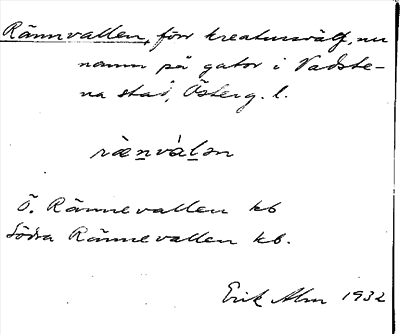 Rännvallen, förr kreatursväg, nu
namn på gator i Vadste-
na stad, Österg. l.
rænválən
Ö. Rännevallen kb
Södra Rännevallen kb.
Erik Alm 1932